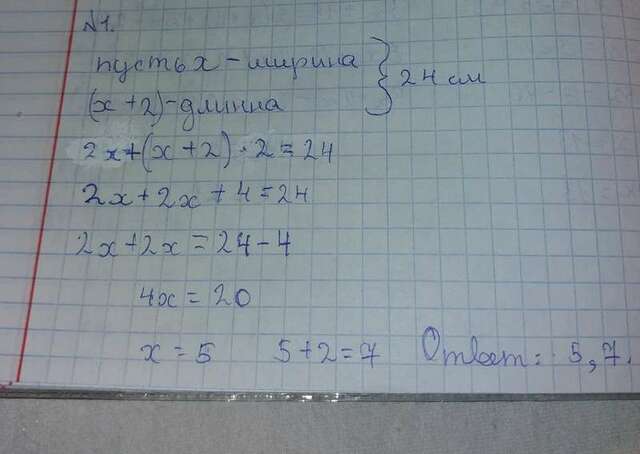 №1.
пусть x - ширина } 24 см
(x+2) - длинна
2x+(x+2)·2=24
2x+2x+4=24
2x+2x=24-4
4x=20
x=5 5+2=7 Ответ: 5,7.